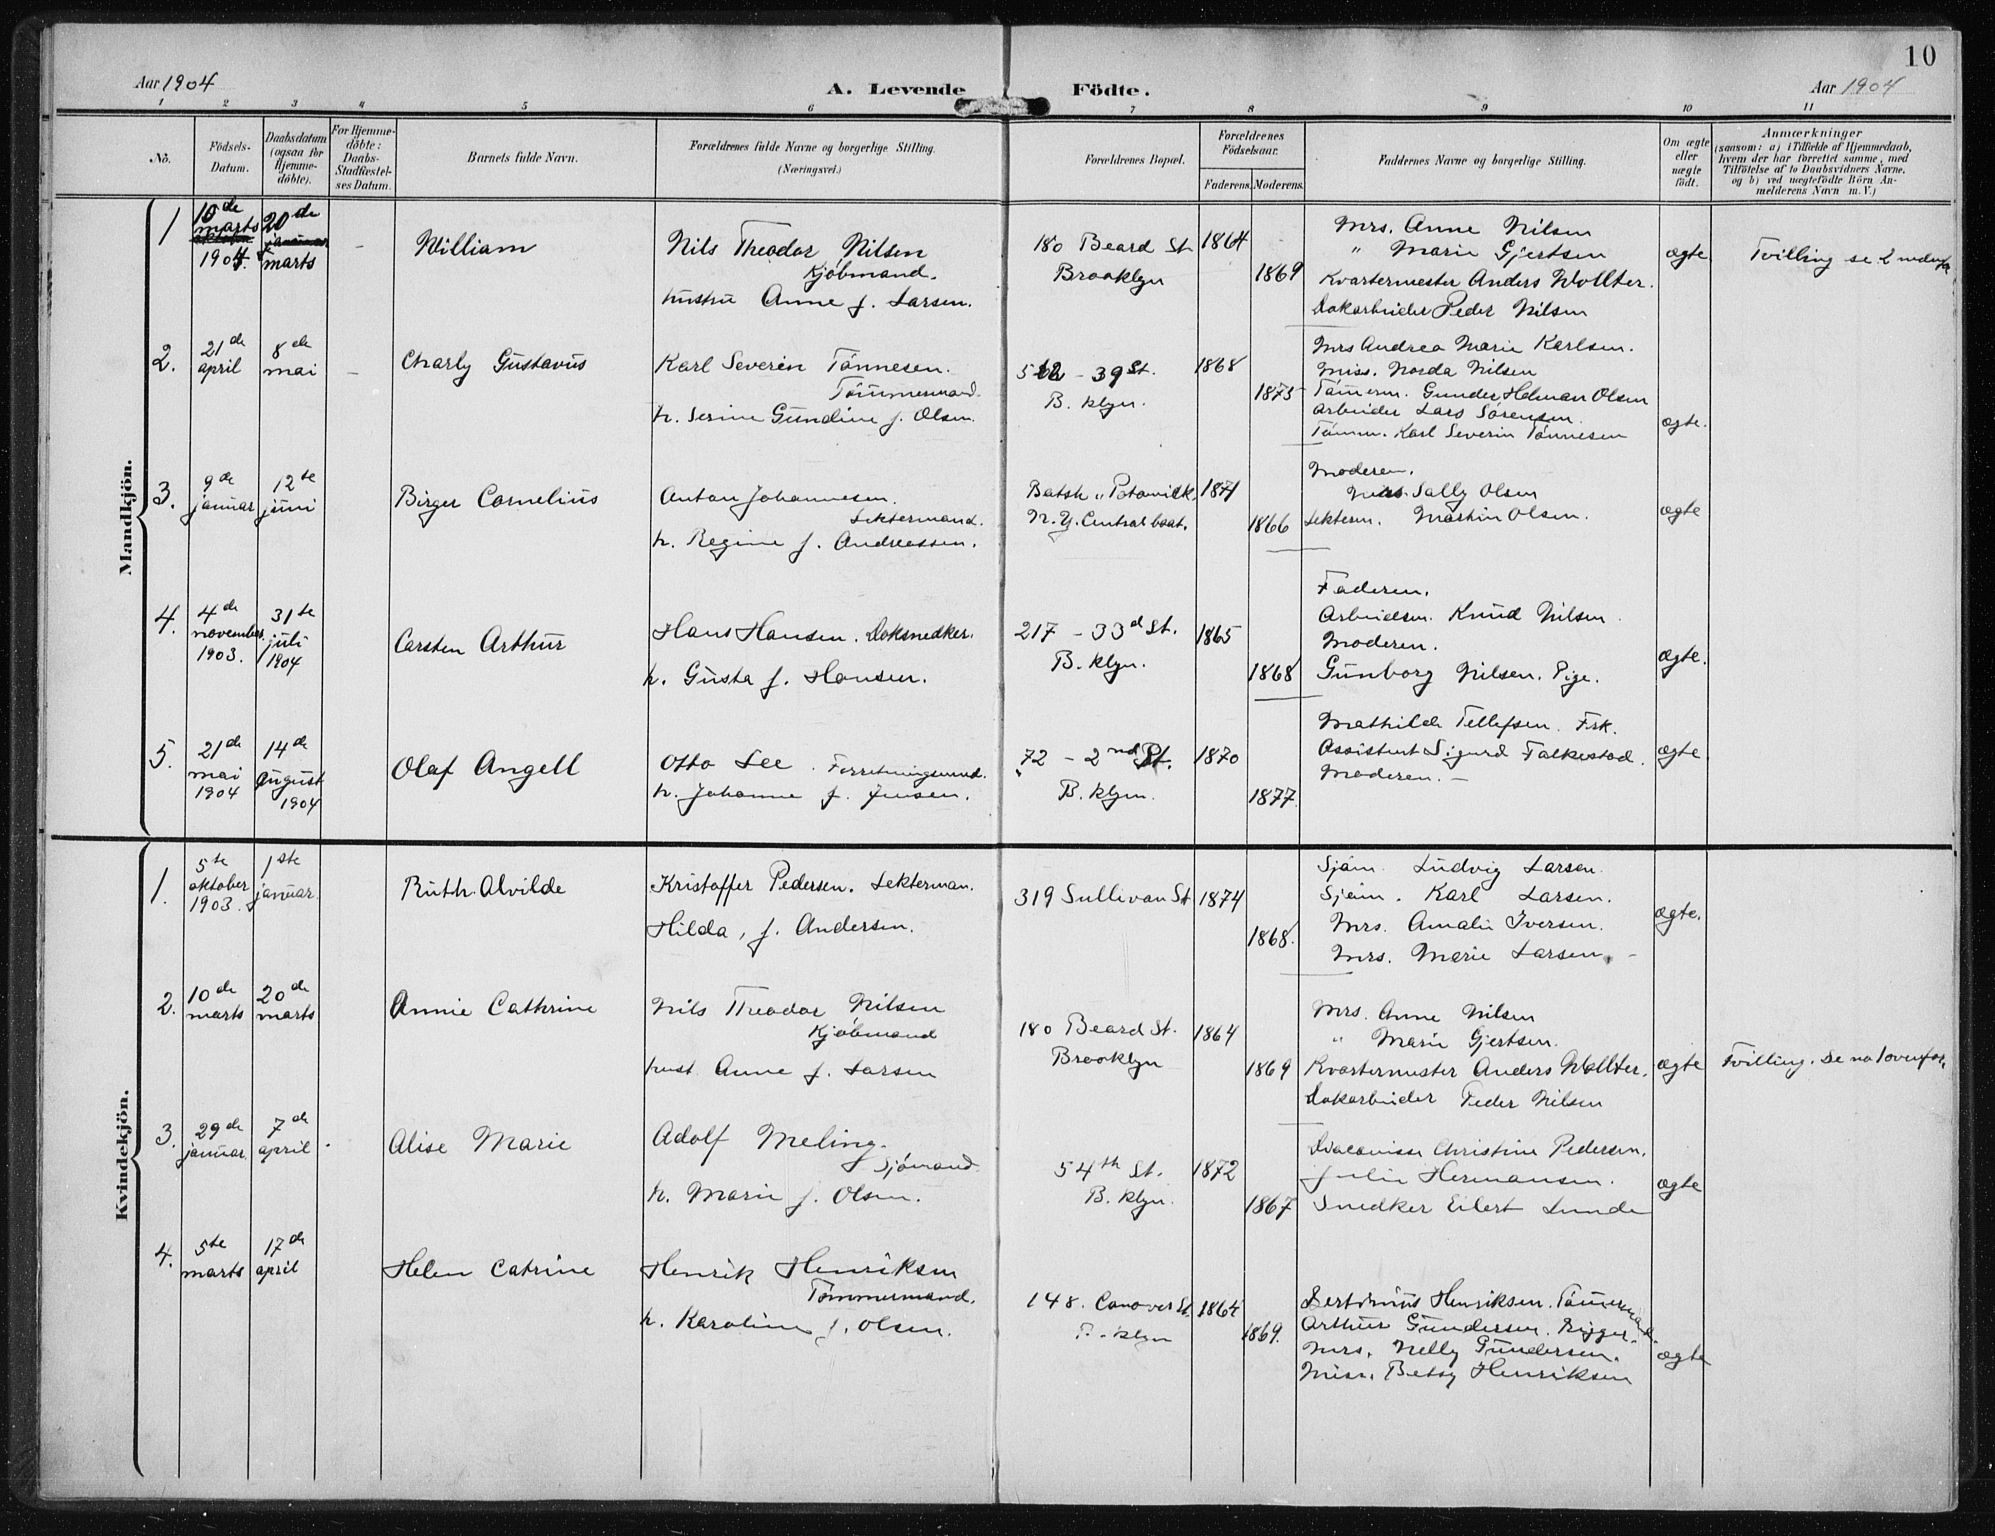 10
Aar 1904
A. Levende Födte.
Aar 1904
1 2 3 4 5 6 7 8 9 10 11
No.
Födsels-
Datum.
Daabsdatum
(ogsaa for
Hjemme-
döbte).
For Hjemme-
döbte:
Daabs-
Stadfæstel-
ses Datum.
Barnets fulde Navn.
Forældrenes fulde Navne og borgerlige Stilling.
(Næringsvei.)
Forældrenes Bopæl.
Forældrenes
Födselsaar.
Faderens. Moderens.
Faddernes Navne og borgerlige Stilling.
Om ægte
eller
uægte
födt.
Anmærkninger
(saasom: a) i Tilfælde af Hjemmedaab,
hvem der har forrettet samme, med
Tilföielse af to Daabsvidners Navne,
og b) ved uægtefödte Börn An-
melderens Navn m. V.)
Mandkjön.
1
10de
marts
1904.
20de
januar
marts
William
Nils Theodor Nilsen
Kjöbmand.
hustru Anne f. Larsen.
180 Beard St
Brooklyn
1864
1869
Mrs. Anne Nilsen
" Marie Gjertsen
Kvartermester Anders Wollter.
Dokarbeider Peder Nilsen
ægte
Tvilling se 2 nedenfor
2.
21de
april
8de
mai
Charly Gustavus
Karl Severin Tönnesen.
Tömmermand.
h. Serine Gundine f. Olsen.
512 - 39 St.
B. klyn.
1868
1875
Mrs Andrea Marie Karlsen.
Miss. Norda Nilsen
Tömerm. Gunder Helman Olsen
Arbeider Lars Sörensen
Tömm. Karl Severin Tönnesen
ægte.
3.
9de
januar
12te
juni
Birger Cornelius
Anton Johannesen.
Lektermand.
h. Regine f. Andreassen.
N.Y. Central boat.
1871
1866
Moderen.
Mrs. Sally Olsen
Lekterm. Martin Olsen.
ægte
4.
4de
november
1903.
31te
juli
1904
Carsten Arthur
Hans Hansen. Doksnedker.
h. Gusta f. Hansen.
217 - 33d St.
B. klyn.
1865
1868
Faderen.
Arbeidsm. Knud Nilsen
Moderen.
Gunborg Nilsen. Pige.
ægte.
5.
21de
mai
1904
14de
august
1904
Olaf Angell
Otto Lee. Forretningsmd.
h. Johanne f. Jensen.
72 - 2nd St.
B. klyn.
1870
1877.
Mathilde Tellefsen. Frk.
Assistent Sigurd Falkestad.
Moderen. -
ægte
Kvindekjön.
1.
5te
oktober
1903.
1ste
januar.
Ruth Alvilde
Kristoffer Pedersen. Lekterman.
Hilda, f. Andersen.
319 Sullivan St
1874
1868.
Sjöm. Ludvig Larsen.
Sjöm. Karl Larsen.
Mrs. Amalie Iversen.
Mrs. Marie Larsen. -
ægte.
2.
10de
marts
20de
marts
Annie Cathrine
Nils Theodor Nilsen
Kjöbmand
hust. Anne f. Larsen
180 Beard St.
Brooklyn
1864
1869
Mrs. Anne Nilsen
" Marie Gjertsen.
Kvartermester Anders Wollter.
Dokarbeider Peder Nilsen
ægte
Tvilling. Se no 1 ovenfor.
3.
29de
januar.
7de
april
Alise Marie
Adolf Meling.
Sjömand
h. Marie f. Olsen.
54th St.
B. klyn.
1872
1867
Diaconisse Christine Pedersen.
Julie Hermansen.
Snedker Eilert Lunde
ægte
4.
5te
marts
17de
april
Helen Catrine
Henrik Henriksen
Tömmermand.
h. Karoline f. Olsen.
148. Conover St.
B. klyn
1864
1869.
Henriksen. Tömmermand.
Arthur Gundersen. Rigger.
Mrs. Nelly Gundersen.
Miss. Betsy Henriksen
ægte